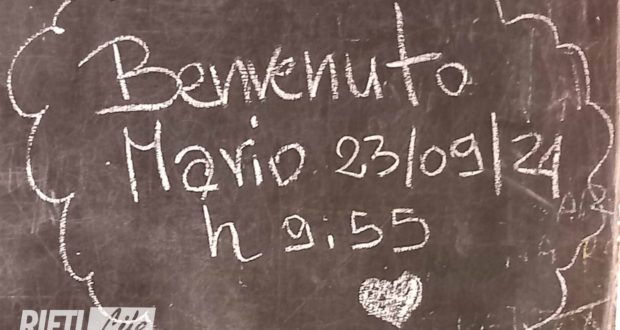 Benvenuto
Mario 23/09/24
h 9:55
RIETI life